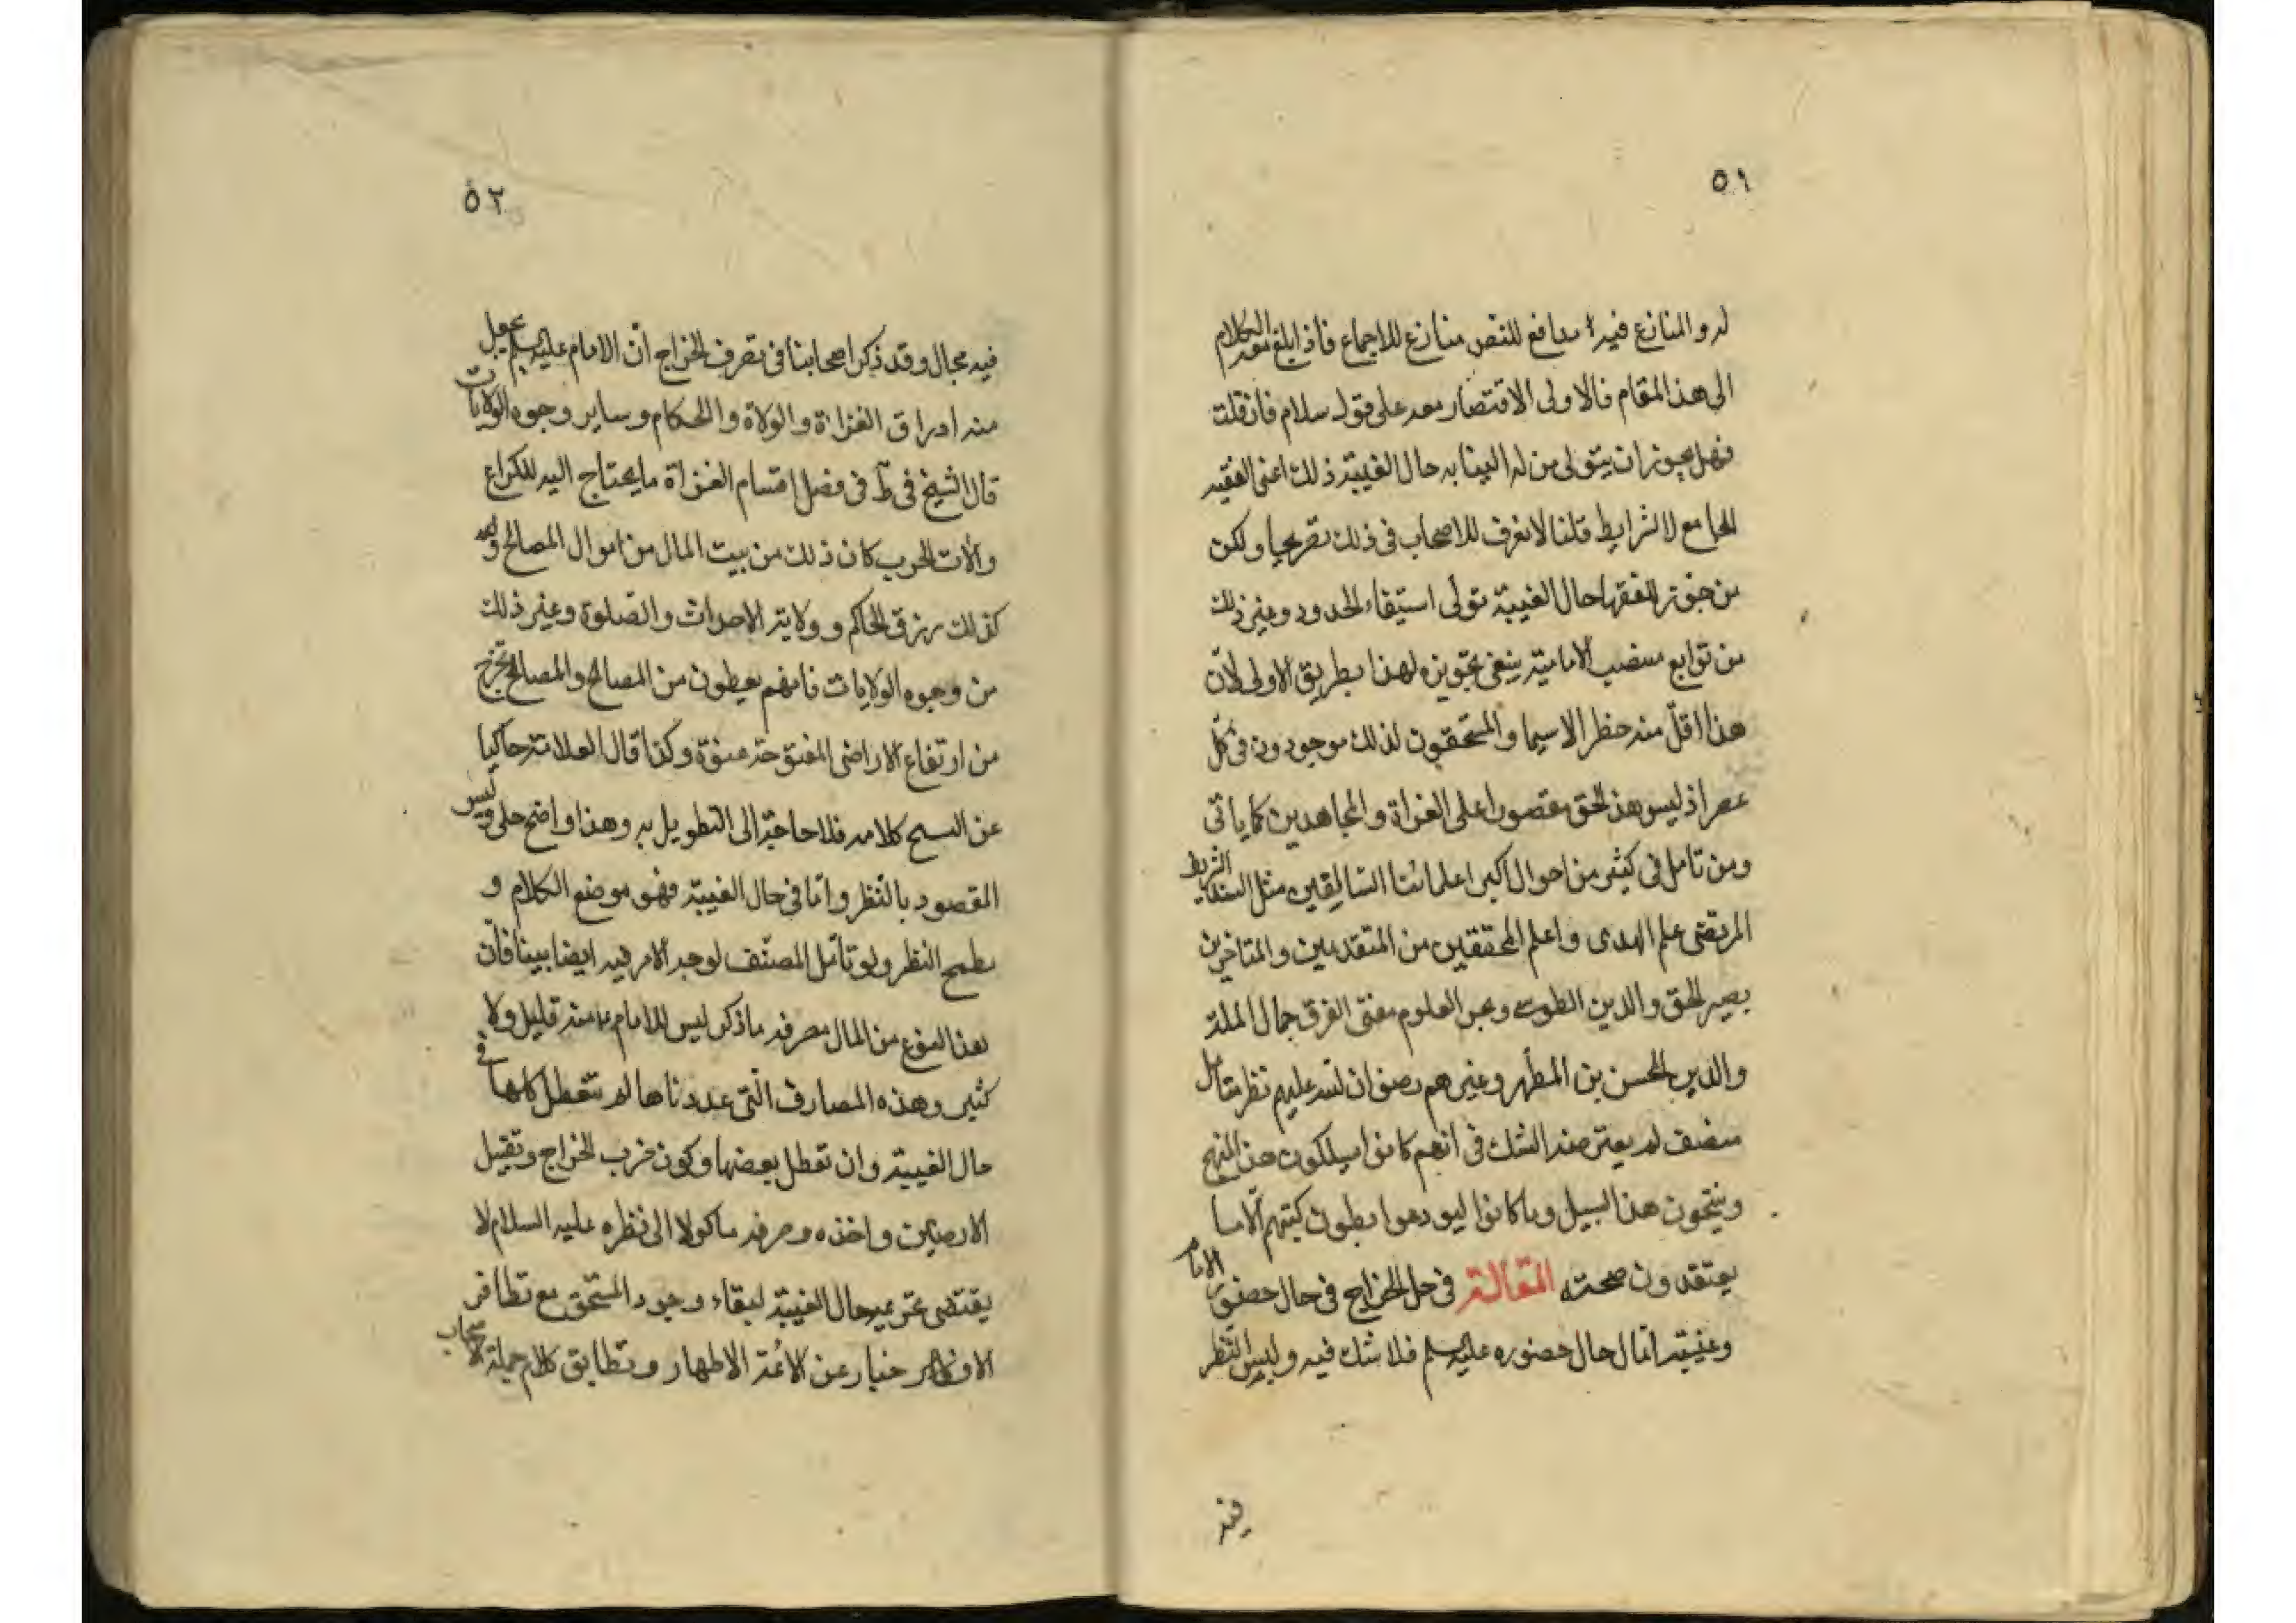 ٥١
له والمنازع فيه مدافع للنص منازع للاجماع فاذا بلغ معه الكلام
الى هذا المقام فالاولى الاقتصار معه على قول سلام فان قلت
فهل يجوز ان يتولى من له النيابه حال الغيبة ذلك اعنى الفقيه
الجامع للشرايط قلنا لا نعرف للاصحاب فى ذلك تصريحا ولكن
من جوز للفقها حال الغيبة تولى استيفاء الحدود وغير ذلك
من توابع منصب الامامية ينبغى تجويزه لهذا بطريق الاولى لان
هذا اقل منه خطرا لاسيما والمستحقون لذلك موجودون فى كل
عصر اذ ليس هذا الحق مقصورا على الغزاة والمجاهدين كما ياتى
ومن تامل فى كثير من احوال اكبر اعلمائنا السالفين مثل السيد الشريف
المرتضى علم الهدى واعلم المحققين من المتقدمين والمتاخرين
نصير الحق والدين الطوسى وبحر العلوم مفتى الفرق جمال الملة
والدين الحسن بن المطهر وغيرهم رضوان الله عليهم نظر متامل
منصف لم يعترضه الشك فى انهم كانوا يسلكون هذا النهج
وينتحون هذا السبيل وما كانوا ليودعوا بطون كتبهم الا ما
يعتقدون صحته المقالة فى حل الخراج فى حال حضور الامام
وغيبته اما حال حضوره عليه السلم فلا شك فيه وليس للنظر
فيه
٥٢
فيه مجال وقد ذكر اصحابنا فى تصرف الخراج ان الامام عليه السلم يجعل
منه ارزاق الغزاة والولاة والحكام وساير وجوه الولايات
قال الشيخ فى ط فى فصل اقسام الغزاة ما يحتاج اليه للكراع
وآلات الحرب كان ذلك من بيت المال من اموال المصالح و
كذلك رزق الحاكم وولاية الاحداث والصلوة وغير ذلك
من وجوه الولايات فانهم يعطون من المصالح والمصالح تخرج
من ارتفاع الاراضى المفتوحة عنوة وكذا قال العلامة حاكيا
عن الشيخ كلامه فلا حاجة الى التطويل به وهذا واضح جلى وليس
المقصود بالنظر واما فى حال الغيبة فهو موضع الكلام و
مطمح النظر ولو تامل المصنف لوجد الامر فيه ايضا بينا فان
هذا النوع من المال مصرفه ما ذكر ليس للامام ع منه قليل ولا
كثير وهذه المصارف التى عددناها لم تتعطل كلها فى
حال الغيبة وان تعطل بعضها وكون ضرب الخراج وتقبيل
الارضين واخذه وصرفه ماكولا الى نظره عليه السلام لا
يقتضى تحريمه حال الغيبة لبقاء وجود المستحق مع تظافر
الاخبار عن الائمة الاطهار وتطابق كلام جملة الاصحاب